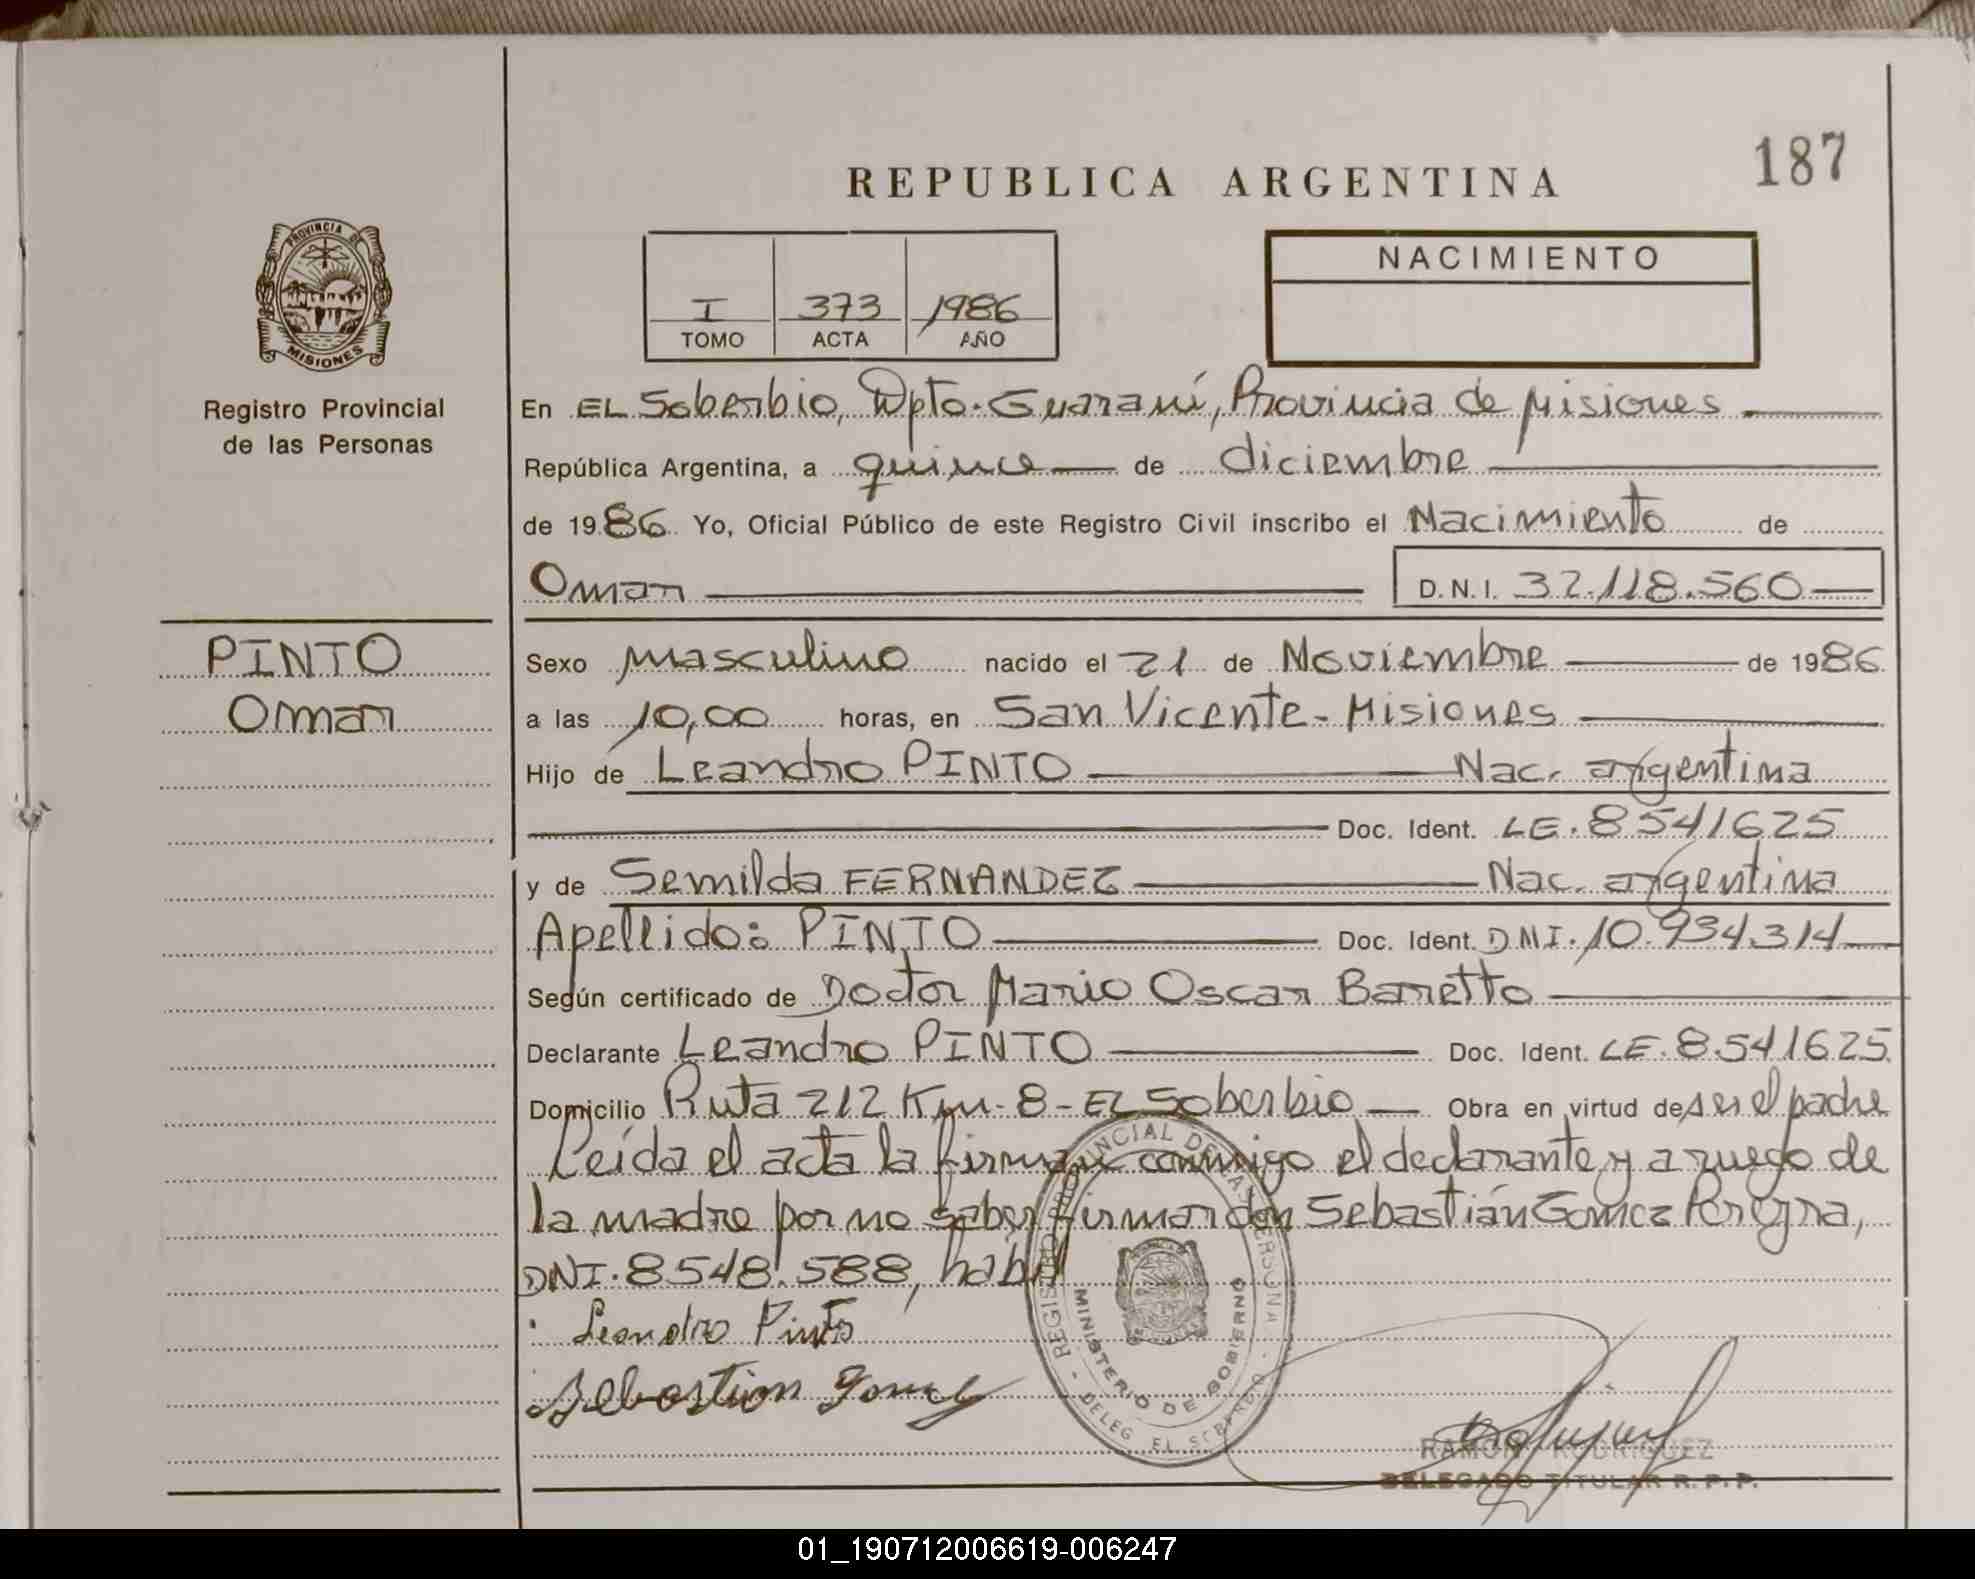 REPUBLICA ARGENTINA
187
PROVINCIA DE
MISIONES
Registro Provincial
de las Personas
I 373 1986
TOMO ACTA AÑO
NACIMIENTO
En EL Soberbio, Dpto. Guaraní, Provincia de Misiones
República Argentina, a quince de diciembre
de 1986 Yo, Oficial Público de este Registro Civil inscribo el Nacimiento de
Omar D.N.I. 32.118.560
PINTO
Omar
Sexo masculino nacido el 21 de Noviembre de 1986
a las 10,00 horas, en San Vicente - Misiones
Hijo de Leandro PINTO Nac. argentina
Doc. Ident. LE. 8541625
y de Semilda FERNANDEZ Nac. argentina
Apellido: PINTO Doc. Ident. DNI. 10.934.314
Según certificado de Doctor Mario Oscar Baretto
Declarante Leandro PINTO Doc. Ident. LE. 8.541625
Domicilio Ruta 212 Km - 8 - EL Soberbio Obra en virtud de ser el padre
Leída el acta la firman conmigo el declarante y a ruego de
la madre por no saber firmar don Sebastián Gomez Pereyra,
DNI. 8548.588, habil
Leandro Pinto
Sebastian Gomez
REGISTRO PROVINCIAL DE LAS PERSONAS
MINISTERIO DE GOBIERNO
DELEG. EL SOBERBIO
RAMON RODRIGUEZ
DELEGADO TITULAR R.P.P.
01_190712006619-006247